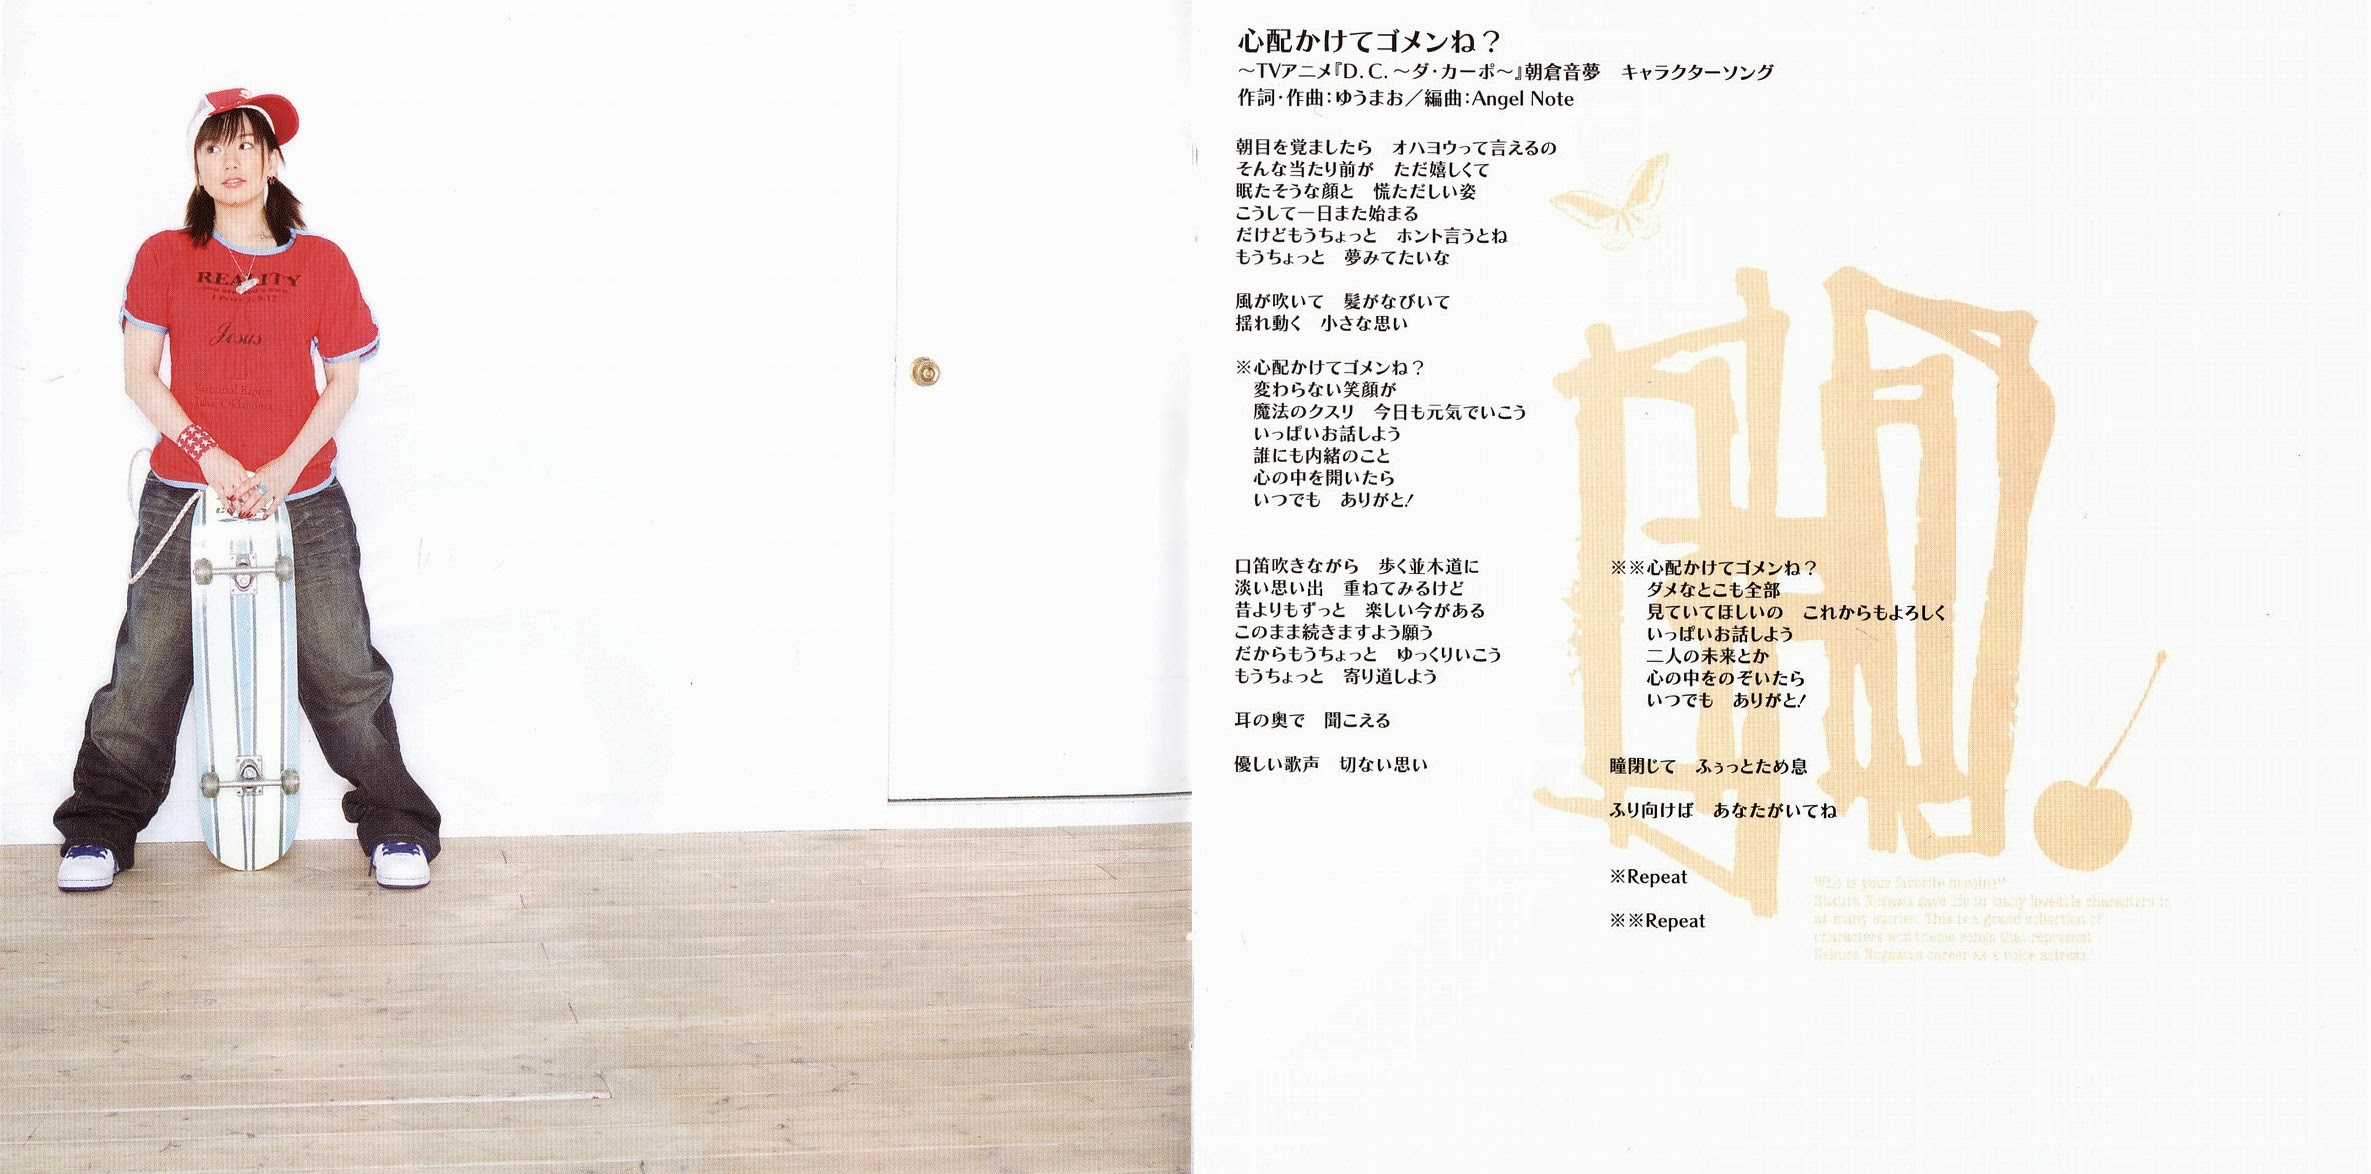 REALITY
1 Peter 2: 9-12
Jesus
心配かけてゴメンね？
～TVアニメ『D.C.～ダ・カーポ～』朝倉音夢　キャラクターソング
作詞・作曲：ゆうまお／編曲：Angel Note
朝目を覚ましたら　オハヨウって言えるの
そんな当たり前が　ただ嬉しくて
眠たそうな顔と　慌ただしい姿
こうして一日また始まる
だけどもうちょっと　ホント言うとね
もうちょっと　夢みてたいな
風が吹いて　髪がなびいて
揺れ動く　小さな思い
※心配かけてゴメンね？
変わらない笑顔が
魔法のクスリ　今日も元気でいこう
いっぱいお話しよう
誰にも内緒のこと
心の中を開いたら
いつでも　ありがと！
口笛吹きながら　歩く並木道に
淡い思い出　重ねてみるけど
昔よりもずっと　楽しい今がある
このまま続きますよう願う
だからもうちょっと　ゆっくりいこう
もうちょっと　寄り道しよう
耳の奥で　聞こえる
優しい歌声　切ない思い
※※心配かけてゴメンね？
ダメなとこも全部
見ていてほしいの　これからもよろしく
いっぱいお話しよう
二人の未来とか
心の中をのぞいたら
いつでも　ありがと！
瞳閉じて　ふぅっとため息
ふり向けば　あなたがいてね
※Repeat
※※Repeat
Who is your favorite heroine?
Sakura Nogawa gave life to many loveable characters in
as many stories. This is a grand collection of
characters and theme songs that represent
Sakura Nogawa's career as a voice actress